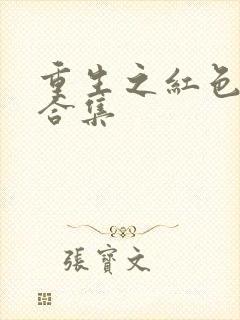 重生之紅色
合集
張寶文